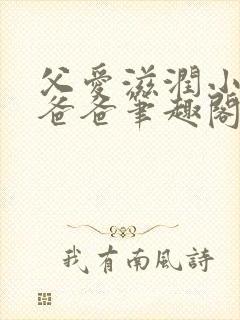 父愛滋潤小
爸爸筆趣閣
我有南風詩